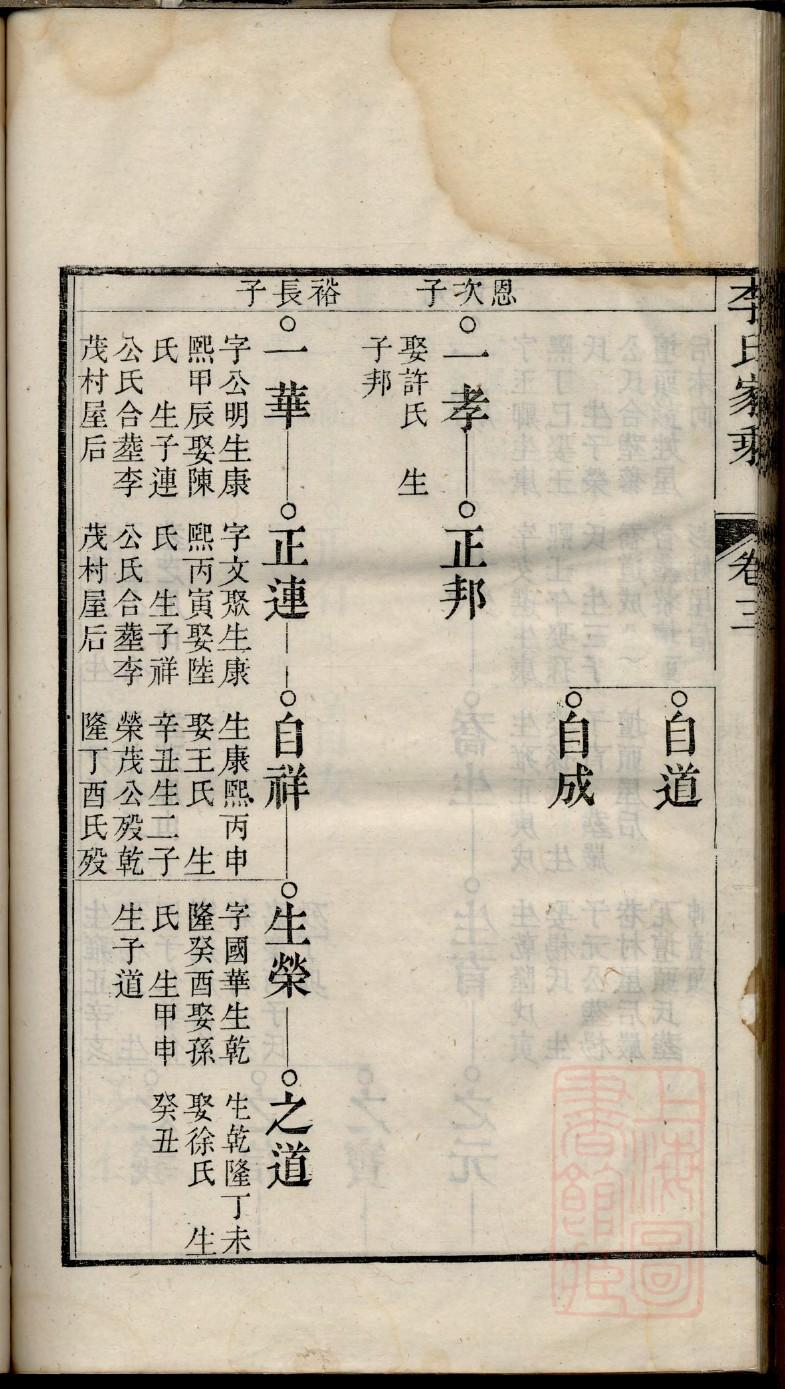 李氏家乘 卷三
自道
自成
恩次子
一孝
娶許氏 生
子邦
正邦
裕長子
一華
字公明生康
熙甲辰娶陳
氏 生子連
公氏合塟李
茂村屋后
正連
字文聚生康
熙丙寅娶陸
氏 生子祥
公氏合塟李
茂村屋后
自祥
生康熙丙申
娶王氏 生
辛丑生二子
榮茂公殁乾
隆丁酉氏殁
生榮
字國華生乾
隆癸酉娶孫
氏 生甲申
生子道
之道
生乾隆丁未
娶徐氏 生
癸丑
上海圖
書館藏